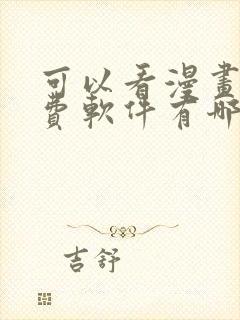 可以看漫畫
費軟件有哪
吉舒